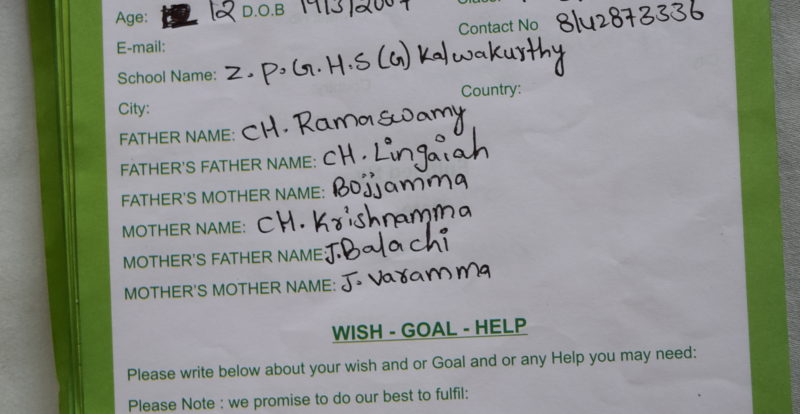 Age: 12 D.O.B 14/3/2007
Contact No 8142873336
E-mail:
School Name: Z.P.G.H.S (G) Kalwakurthy
City: Country:
FATHER NAME: CH. Ramaswamy
FATHER'S FATHER NAME: CH. Lingaiah
FATHER'S MOTHER NAME: Bojjamma
MOTHER NAME: CH. Krishnamma
MOTHER'S FATHER NAME: J. Balachi
MOTHER'S MOTHER NAME: J. Varamma
WISH - GOAL - HELP
Please write below about your wish and or Goal and or any Help you may need:
Please Note : we promise to do our best to fulfil: